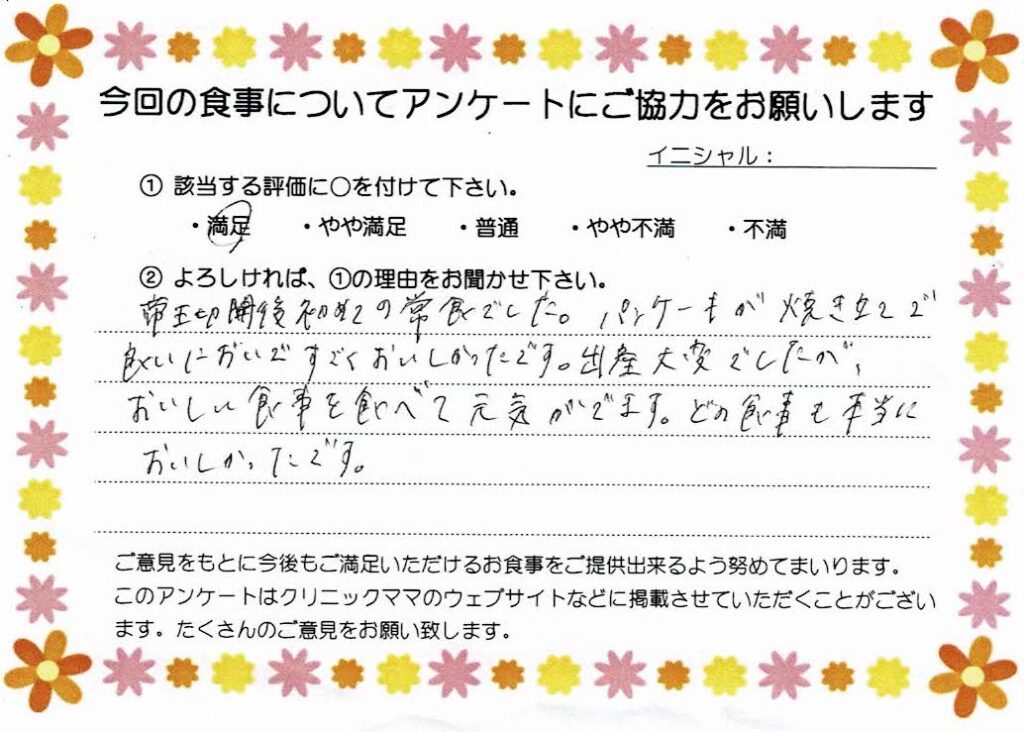 今回の食事についてアンケートにご協力をお願いします
イニシャル：
① 該当する評価に○を付けて下さい。
・満足 ・やや満足 ・普通 ・やや不満 ・不満
② よろしければ、①の理由をお聞かせ下さい。
帝王切開後初めての常食でした。パンケーキが焼き立てで
良いにおいですごくおいしかったです。出産大変でしたが、
おいしい食事を食べて元気がでます。どの食事も本当に
おいしかったです。
ご意見をもとに今後もご満足いただけるお食事をご提供出来るよう努めてまいります。
このアンケートはクリニックママのウェブサイトなどに掲載させていただくことがござい
ます。たくさんのご意見をお願い致します。